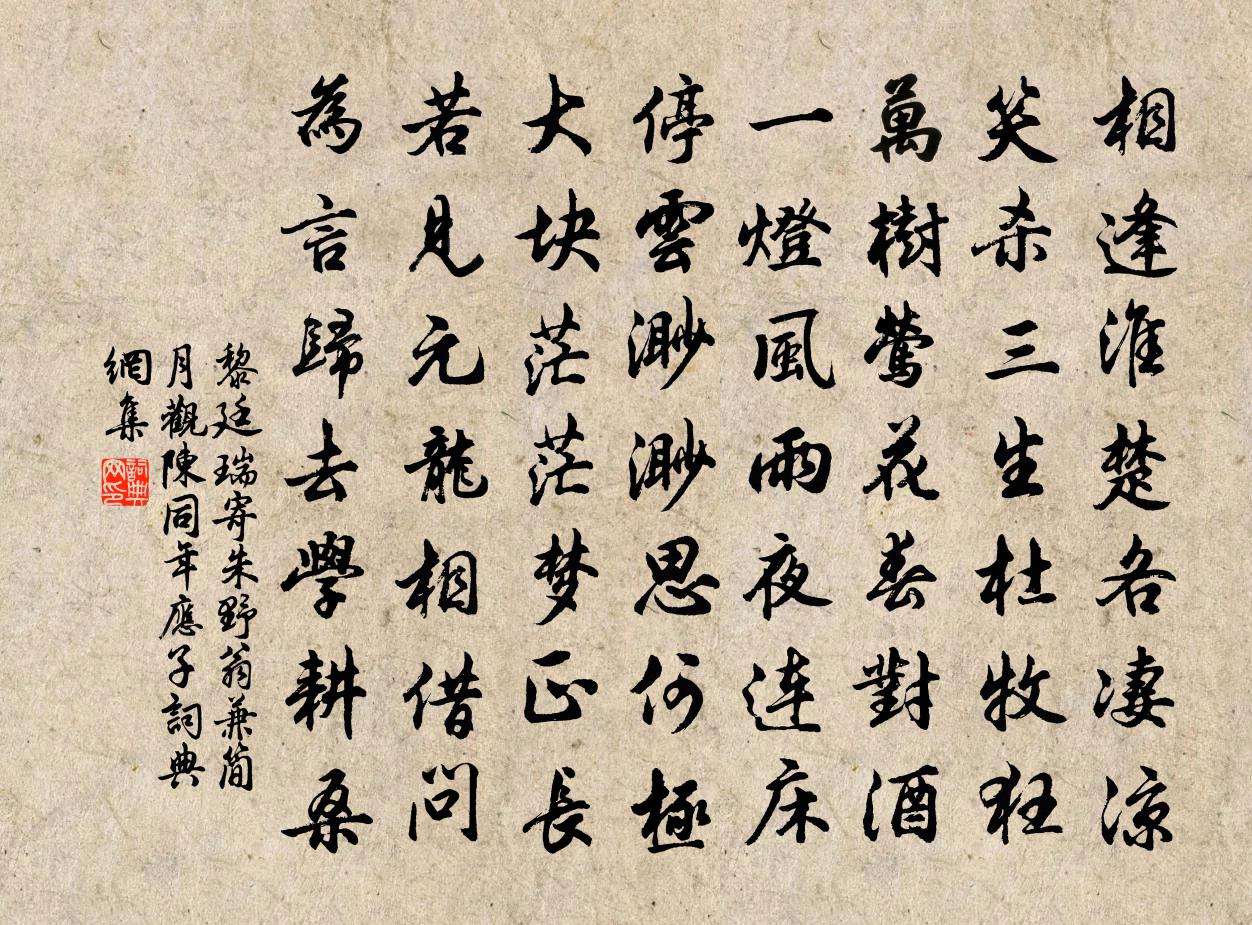 相逢淮楚各淒涼
笑杀三生杜牧狂
萬樹鶯花春對酒
一燈風雨夜連床
停雲渺渺思何極
大块茫茫梦正長
若見元龍相借问
為言歸去學耕桑
黎廷瑞寄朱野翁兼简
月觀陳同年應子詞典
網集
詞典
网印